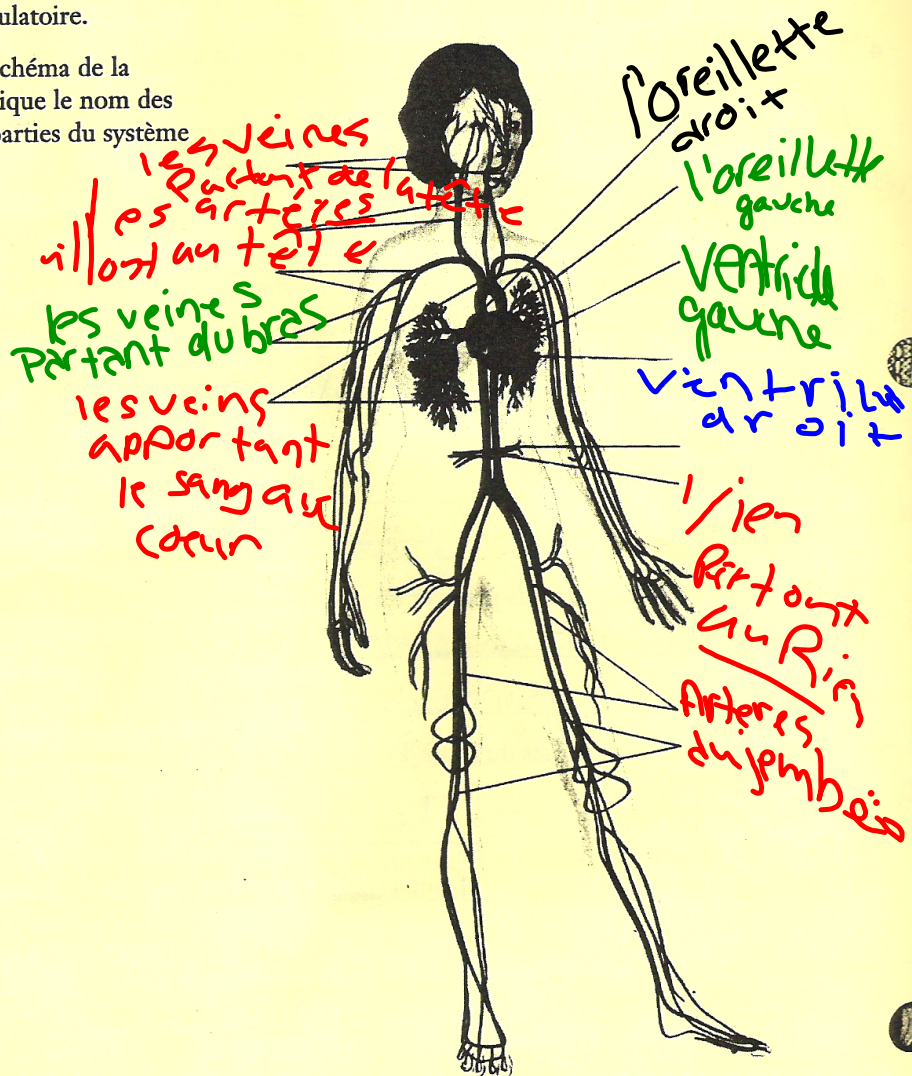 ulatoire.
chéma de la
ique le nom des
parties du système
les veines
partant de la tête
les artères
allont au tête
les veines
partant du bras
les veins
apportant
le sang aux
coeur
l'oreillette
droit
l'oreillette
gauche
ventricle
gauche
droit
partant
au
Artères
du